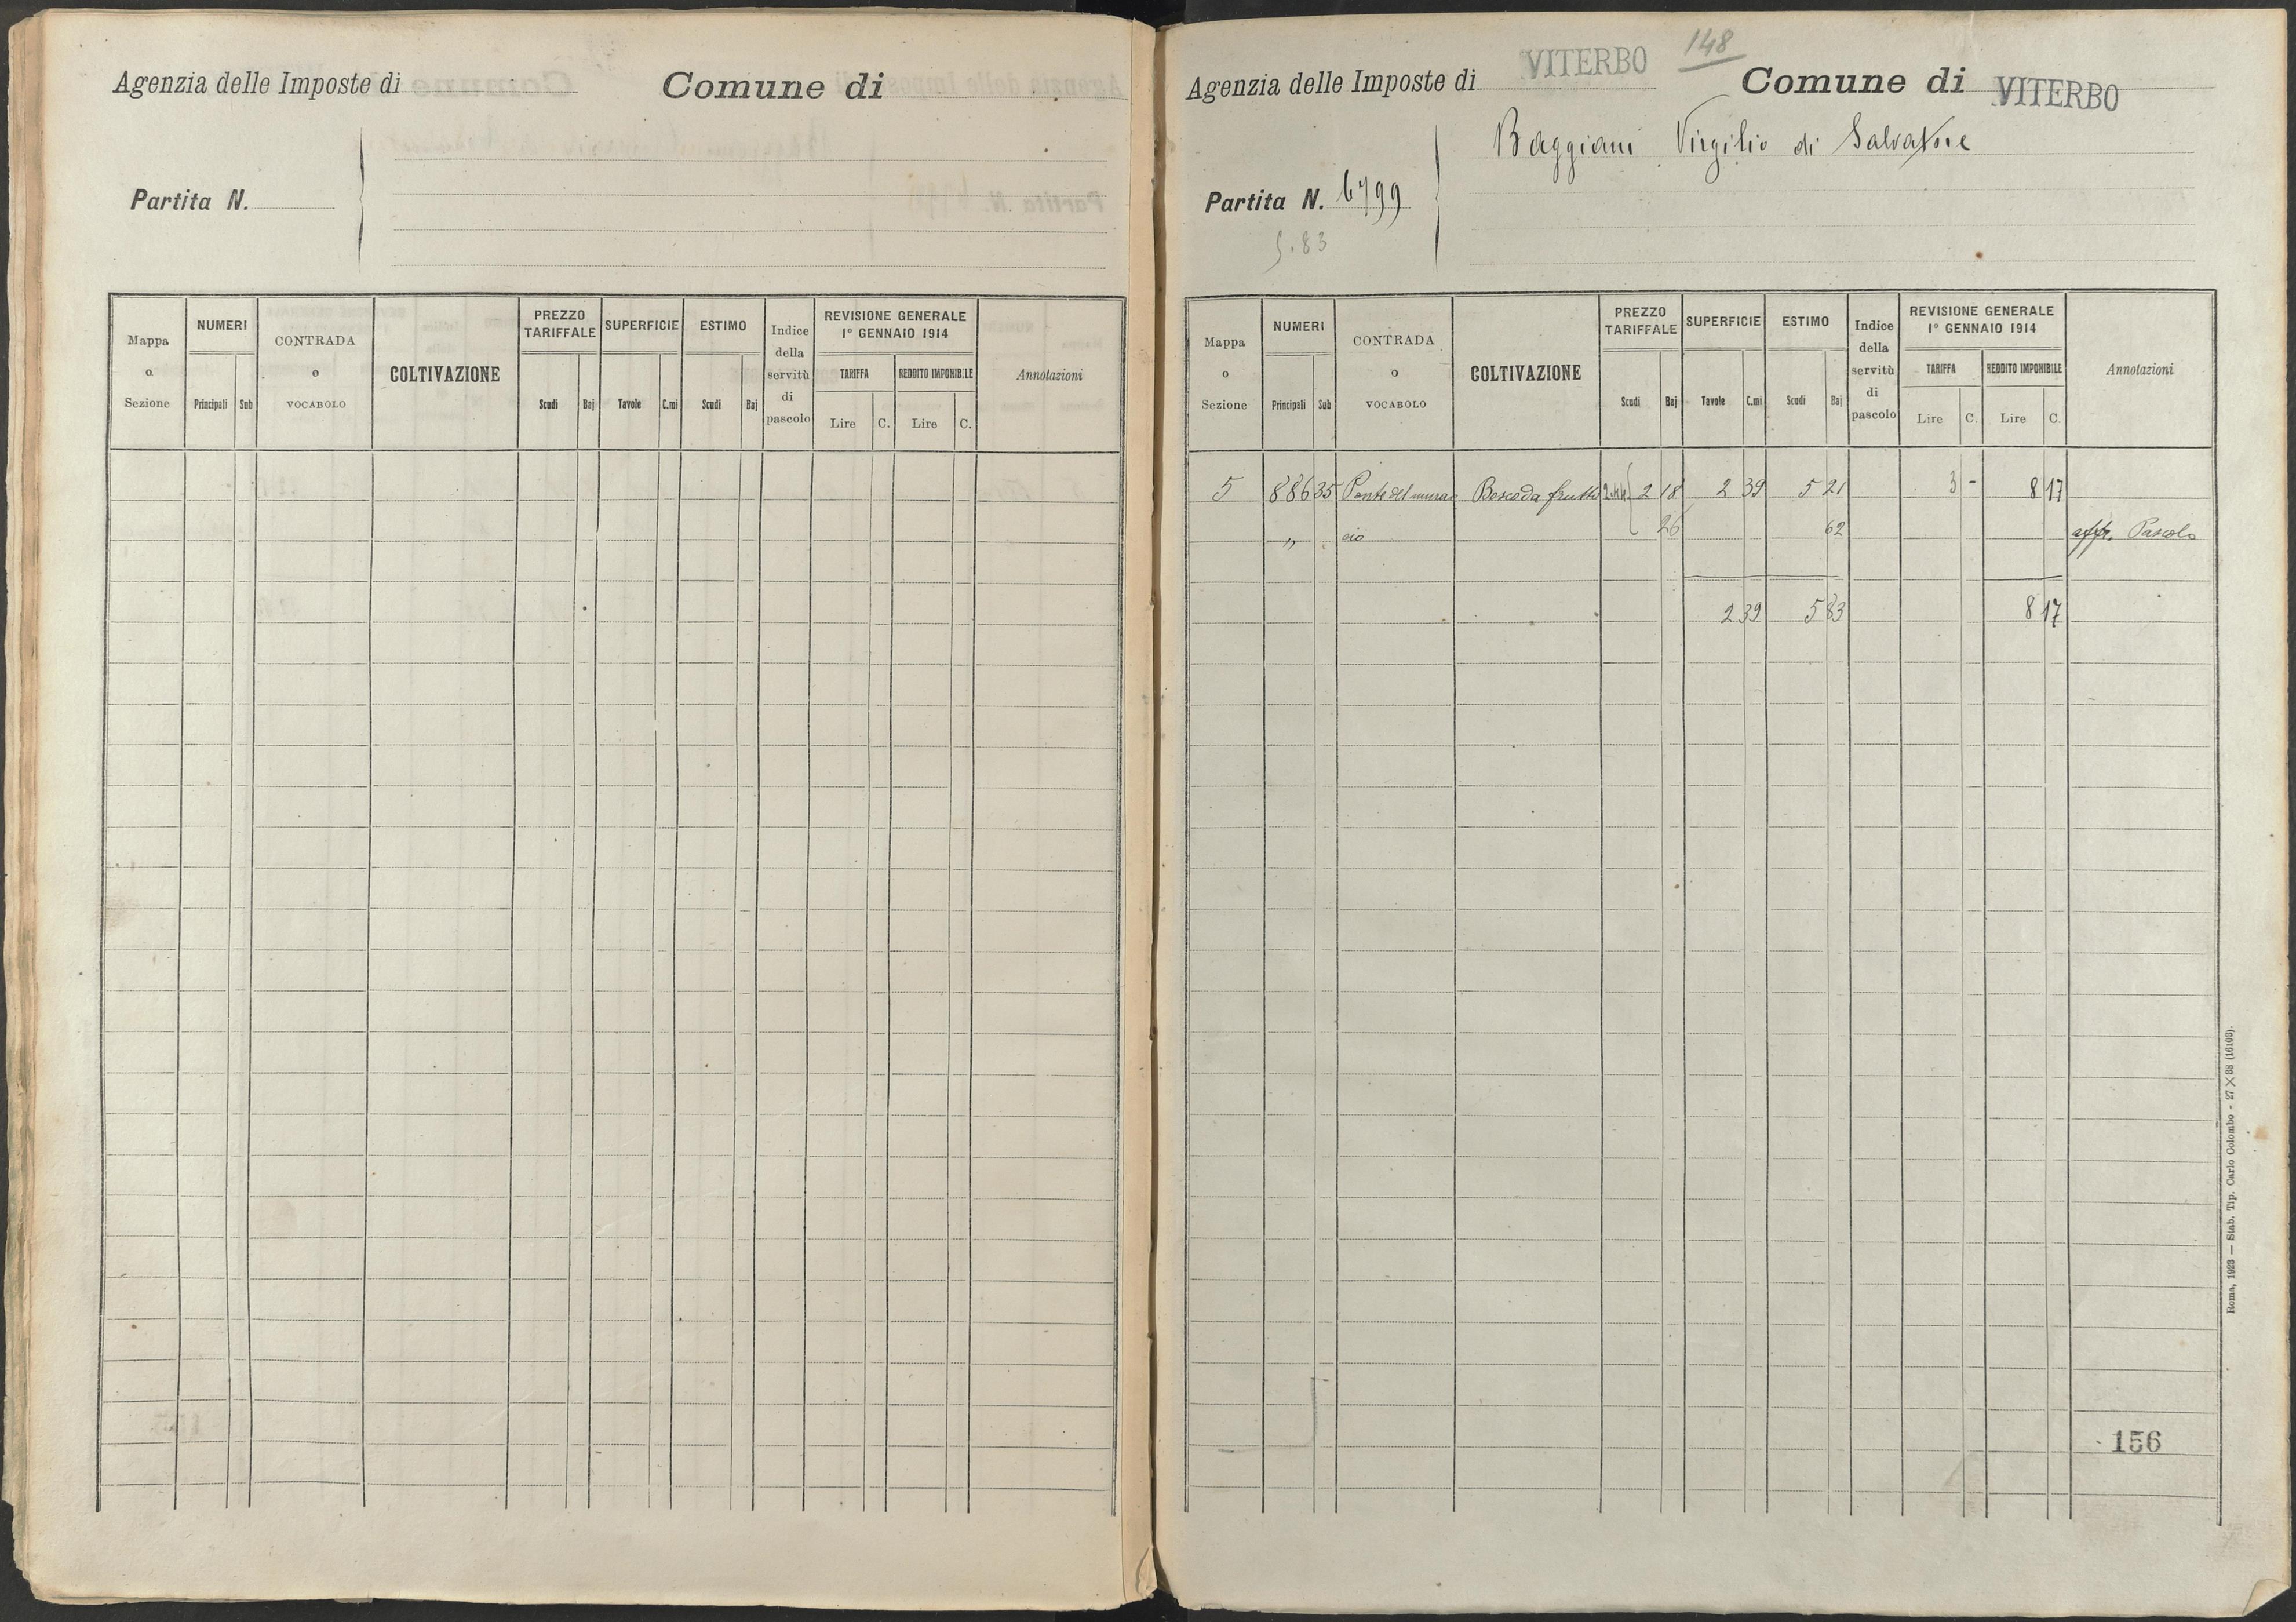 Agenzia delle Imposte di Comune di
Partita N.
Mappa o Sezione NUMERI Principali Sub CONTRADA o VOCABOLO COLTIVAZIONE PREZZO TARIFFALE Scudi Baj SUPERFICIE Tavole C.mi ESTIMO Scudi Baj Indice della servitù di pascolo REVISIONE GENERALE 1° GENNAIO 1914 TARIFFA Lire C. REDDITO IMPONIBILE Lire C. Annotazioni
148
Agenzia delle Imposte di VITERBO Comune di VITERBO
Baggiani Virgilio di Salvatore
Partita N. 6799
5.83
Mappa o Sezione NUMERI Principali Sub CONTRADA o VOCABOLO COLTIVAZIONE PREZZO TARIFFALE Scudi Baj SUPERFICIE Tavole C.mi ESTIMO Scudi Baj Indice della servitù di pascolo REVISIONE GENERALE 1° GENNAIO 1914 TARIFFA Lire C. REDDITO IMPONIBILE Lire C. Annotazioni
5 886 35 Ponte del Bosco da frutto 2 18 2 39 5 21 3 - 8 17
" 26 62 affr. Pascolo
2 39 5 83 8 17
156
Roma, 1923 — Stab. Tip. Carlo Colombo - 27 X 38 (16103).